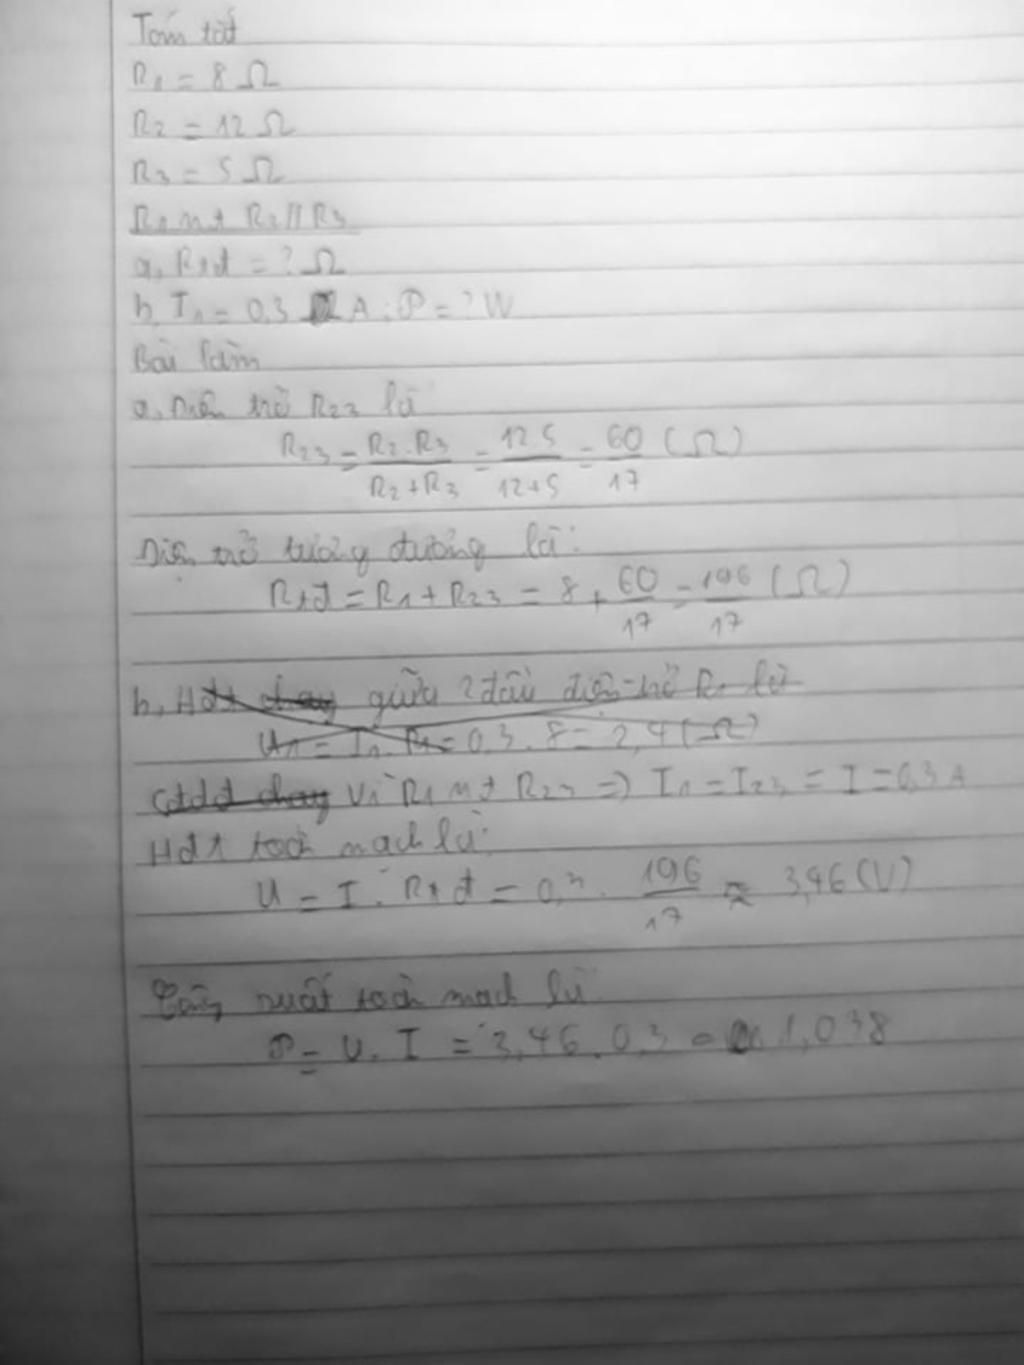 Tóm tắt
R1 = 8 Ω
R2 = 12 Ω
R3 = 5 Ω
R1 nt R2 // R3
a, Rtđ = ? Ω
b, I1 = 0,3 A ; P = ? W
Bài làm
a, Điện trở R23 là
R23 = R2.R3 / R2+R3 = 12.5 / 12+5 = 60/17 (Ω)
Điện trở tương đương là:
Rtđ = R1 + R23 = 8 + 60/17 = 196/17 (Ω)
b, Hđt chạy giữa 2 đầu điện trở R1 là
U1 = I1. R1 = 0,3 . 8 = 2,4 (Ω)
Cđdđ chạy Vì R1 nt R23 => I1 = I23 = I = 0,3 A
Hđt toàn mạch là:
U = I . Rtđ = 0,3 . 196/17 ≈ 3,46 (V)
Công suất toàn mạch là
P = U. I = 3,46 . 0,3 = 1,038